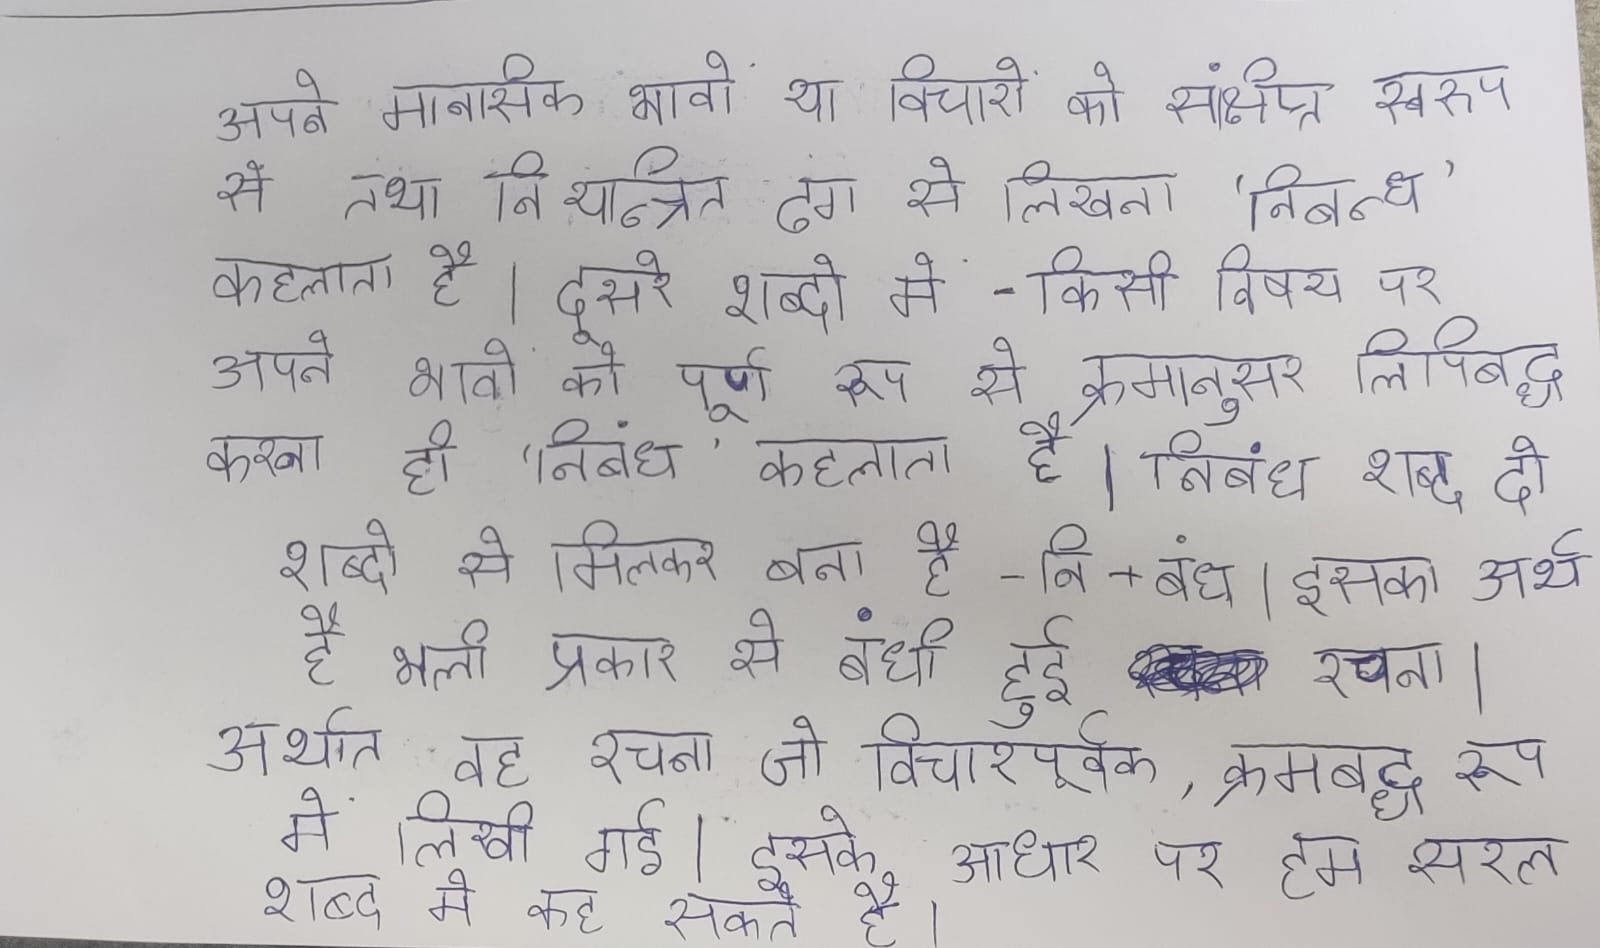 अपने मानसिक भावों या विचारों को संक्षिप्त स्वरुप
से तथा नियन्त्रित ढंग से लिखना 'निबन्ध'
कहलाता है। दूसरे शब्दो में - किसी विषय पर
अपने भावों को पूर्ण रूप से क्रमानुसर लिपिबद्ध
करना ही 'निबंध' कहलाता है। निबंध शब्द दो
शब्दो से मिलकर बना है - नि + बंध। इसका अर्थ
है भली प्रकार से बंधी हुई रचना।
अर्थात वह रचना जो विचारपूर्वक, क्रमबद्ध रूप
में लिखी गई। इसके आधार पर हम सरल
शब्द मे कह सकते है।